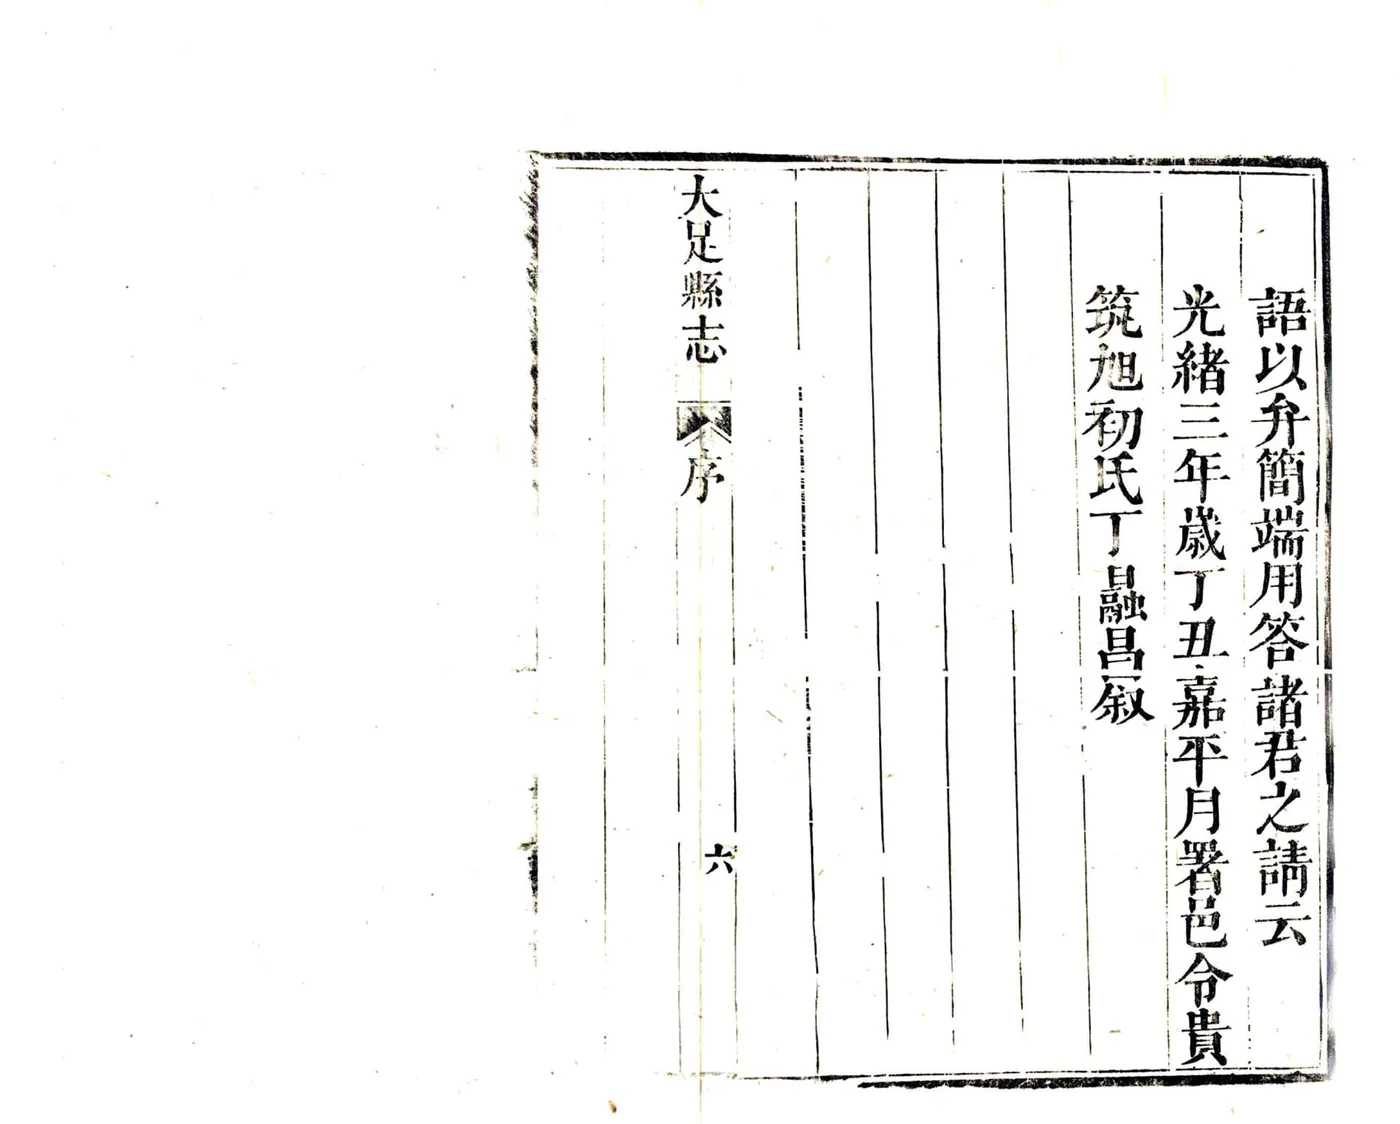 語以弁簡端用答諸君之請云
光緒三年歲丁丑嘉平月署邑令貴
筑旭初氏丁昌叙
大足縣志
序
六